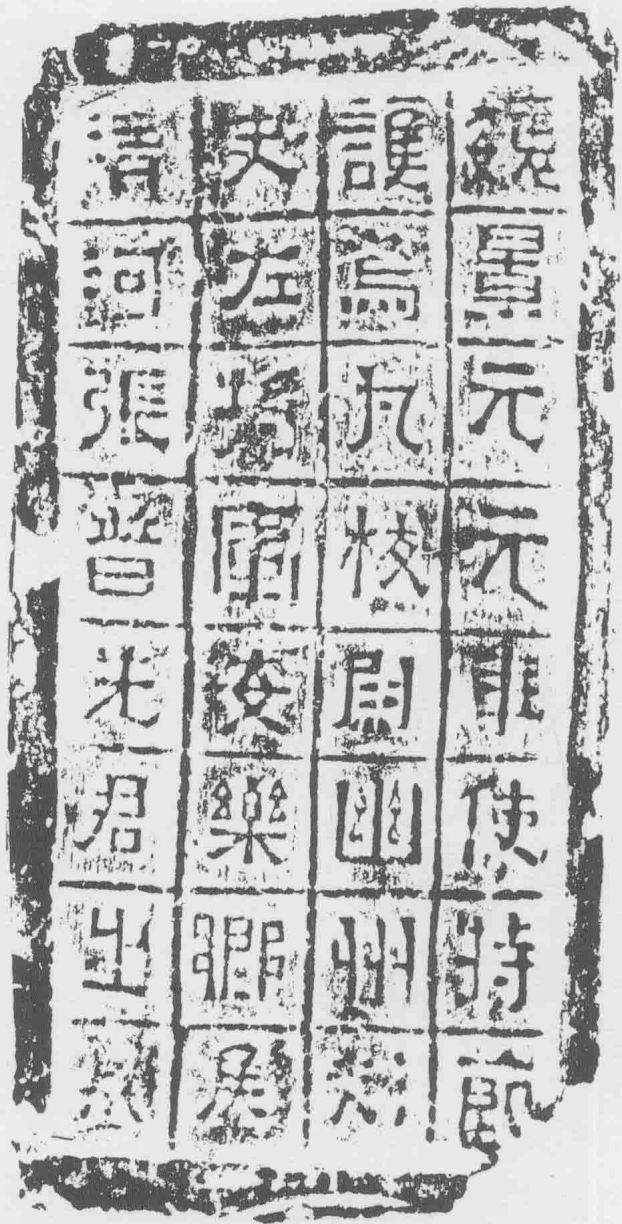 魏景元元年使持節
護烏丸校尉幽州刺
史左將軍安樂鄉侯
清河張普先君之墓